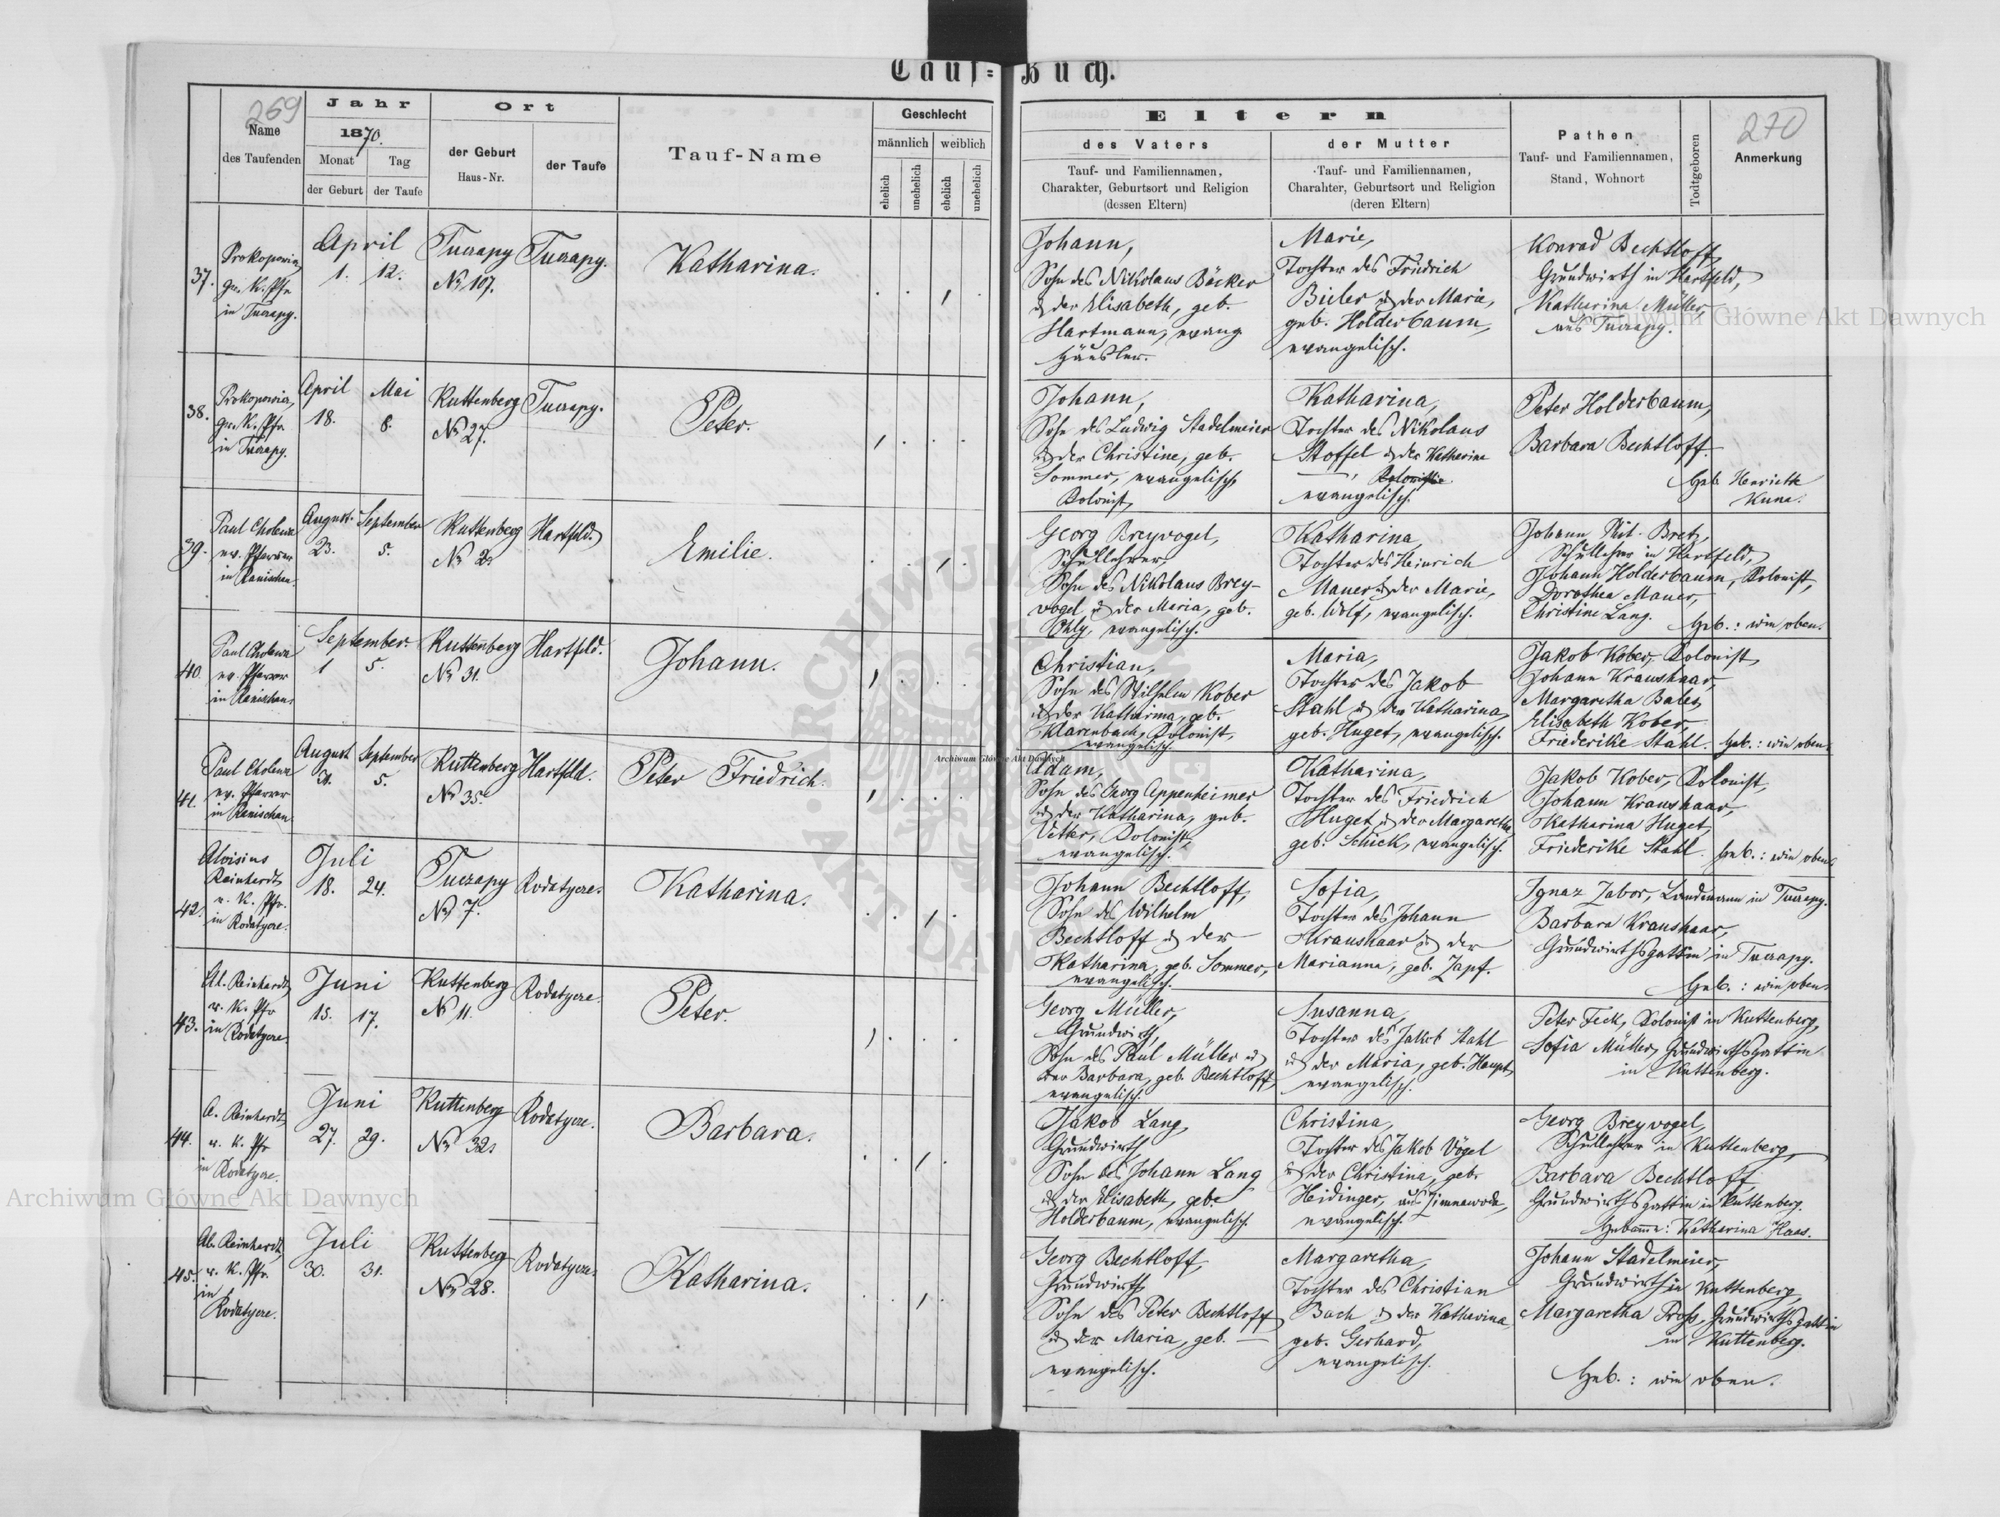 Tauf-Buch.
269
Name
des Taufenden
Jahr
1870.
Monat
Tag
der Geburt
der Taufe
Ort
der Geburt
Haus-Nr.
der Taufe
Tauf-Name
Geschlecht
männlich
weiblich
ehelich
unehelich
ehelich
unehelich
Eltern
des Vaters
Tauf- und Familiennamen,
Charakter, Geburtsort und Religion
(dessen Eltern)
der Mutter
Tauf- und Familiennamen,
Charakter, Geburtsort und Religion
(deren Eltern)
Pathen
Tauf- und Familiennamen,
Stand, Wohnort
Todtgeboren
270
Anmerkung
37.
in Tucrapy.
April
1. 12.
Tucrapy
No 107.
Tucrapy.
Katharina.
Johann,
Sohn des Nikolaus Bäcker
& der Elisabeth, geb.
Hartmann, evang
Häusler.
Marie,
Tochter des Friedrich
Bieler & der Marie,
geb. Holderbaum,
evangelisch.
Konrad Bechtloff,
Grundwirth in Hartfeld,
Katharina Müller,
aus Tucrapy.
38.
in Tucrapy.
April
18.
Mai
8.
Kuttenberg
No 27.
Tucrapy.
Peter.
Johann,
Sohn des Ludwig Stadelmeier
& der Christine, geb.
Sommer, evangelisch
Kolonist
Katharina,
Tochter des Nikolaus
Stoffel & der Katharina
evangelisch.
Peter Holderbaum,
Barbara Bechtloff.
Geb. Henriette
Kuna.
39.
Paul Cholewa
ev. Pfarrer
in Ranischau
August
23.
September
5.
Kuttenberg
No 2
Hartfeld.
Emilie.
Georg Breyvogel,
Schullehrer
Sohn des Nikolaus Brey-
vogel & der Maria, geb.
Ohly, evangelisch.
Katharina,
Tochter des Heinrich
Mauer & der Marie,
geb. Wolf, evangelisch.
Schullehrer in Hartfeld,
Johann Holderbaum, Kolonist,
Dorothea Mauer,
Christine Lang.
Geb.: wie oben.
40.
Paul Cholewa
ev. Pfarrer
in Ranischau
September
1 5.
Kuttenberg
No 31.
Hartfeld.
Johann.
Christian,
Sohn des Wilhelm Kober
& der Katharina, geb.
Klarenbach, Kolonist,
evangelisch.
Maria,
Tochter des Jakob
Stahl & der Katharina,
geb. Huget, evangelisch.
Jakob Kober, Kolonist,
Johann Kraushaar,
Margaretha Bales,
Elisabeth Kober,
Friederike Stahl.
Geb.: wie oben.
41.
Paul Cholewa
ev. Pfarrer
in Ranischau
August
September
5.
Kuttenberg
No 35.
Hartfeld.
Peter Friedrich.
Adam,
Sohn des Georg Appenheimer
& der Katharina, geb.
Vetter, Kolonist,
evangelisch.
Katharina,
Tochter des Friedrich
Huget & der Margaretha
geb. Schick, evangelisch.
Jakob Kober, Kolonist,
Johann Kraushaar,
Katharina Huget,
Friederike Stahl.
Geb.: wie oben.
42.
Aloisius
Reinhardt
r. K. Pfr.
in Rodatycze.
Juli
18. 24.
Tucrapy
No 7.
Rodatycze.
Katharina.
Johann Bechtloff,
Sohn des Wilhelm
Bechtloff & der
Katharina, geb. Sommer,
evangelisch.
Sofia,
Tochter des Johann
Kraushaar & der
Marianna, geb. Zapf.
Ignaz Zabor, Landmann in Tucrapy.
Barbara Kraushaar,
Grundwirthsgattin in Tucrapy.
Geb.: wie oben.
43.
Al. Reinhardt
r. K. Pfr
in Rodatycze.
Juni
15. 17.
Kuttenberg
No 11.
Rodatycze.
Peter.
Georg Müller,
Grundwirth,
Sohn des Paul Müller &
der Barbara, geb. Bechtloff,
evangelisch.
Susanna,
Tochter des Jakob Stahl
& der Maria, geb. Haupt,
evangelisch.
Peter Feck, Kolonist in Kuttenberg,
Sofia Müller, Grundwirthsgattin
in Kuttenberg.
44.
A. Reinhardt
r. K. Pfr
in Rodatycze.
Juni
27. 29.
Kuttenberg
No 32
Rodatycze.
Barbara.
Jakob Lang,
Grundwirth
Sohn des Johann Lang
& der Elisabeth, geb.
Holderbaum, evangelisch.
Christina,
Tochter des Jakob Vögel
& der Christina, geb.
Heidinger, aus Zimnawoda,
evangelisch.
Georg Breyvogel,
Schullehrer in Kuttenberg,
Barbara Bechtloff,
Grundwirthsgattin in Kuttenberg.
Hebamme: Katharina Haas.
45.
Al. Reinhardt
r. K. Pfr.
in
Rodatycze.
Juli
30. 31.
Kuttenberg
No 28.
Rodatycze.
Katharina.
Georg Bechtloff,
Grundwirth
Sohn des Peter Bechtloff
& der Maria, geb. —
evangelisch.
Margaretha,
Tochter des Christian
Bach & der Katharina,
geb. Gerhard,
evangelisch.
Johann Stadelmeier,
Grundwirth in Kuttenberg,
Margaretha Pross, Grundwirthsgattin
in Kuttenberg.
Geb.: wie oben.
Archiwum Główne Akt Dawnych
Archiwum Główne Akt Dawnych
Archiwum Główne Akt Dawnych